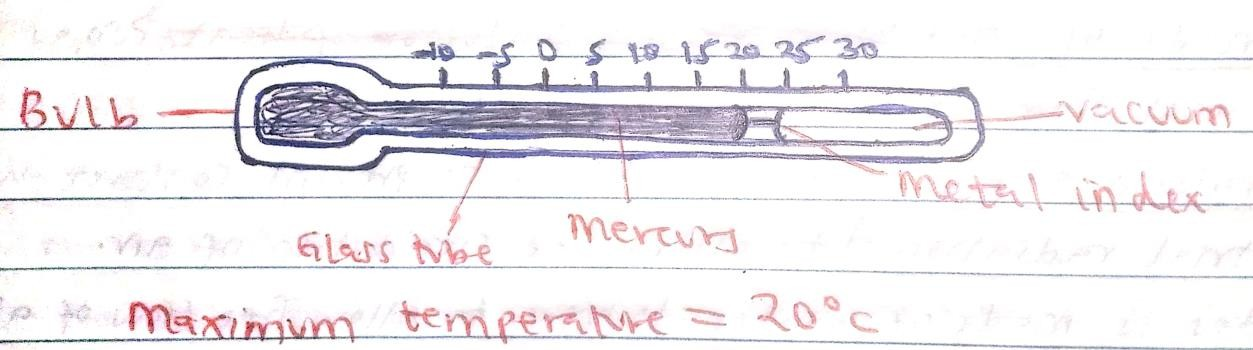 -10 -5 0 5 10 15 20 25 30
Bulb
vacuum
metal index
mercury
Glass tube
Maximum temperature = 20°c